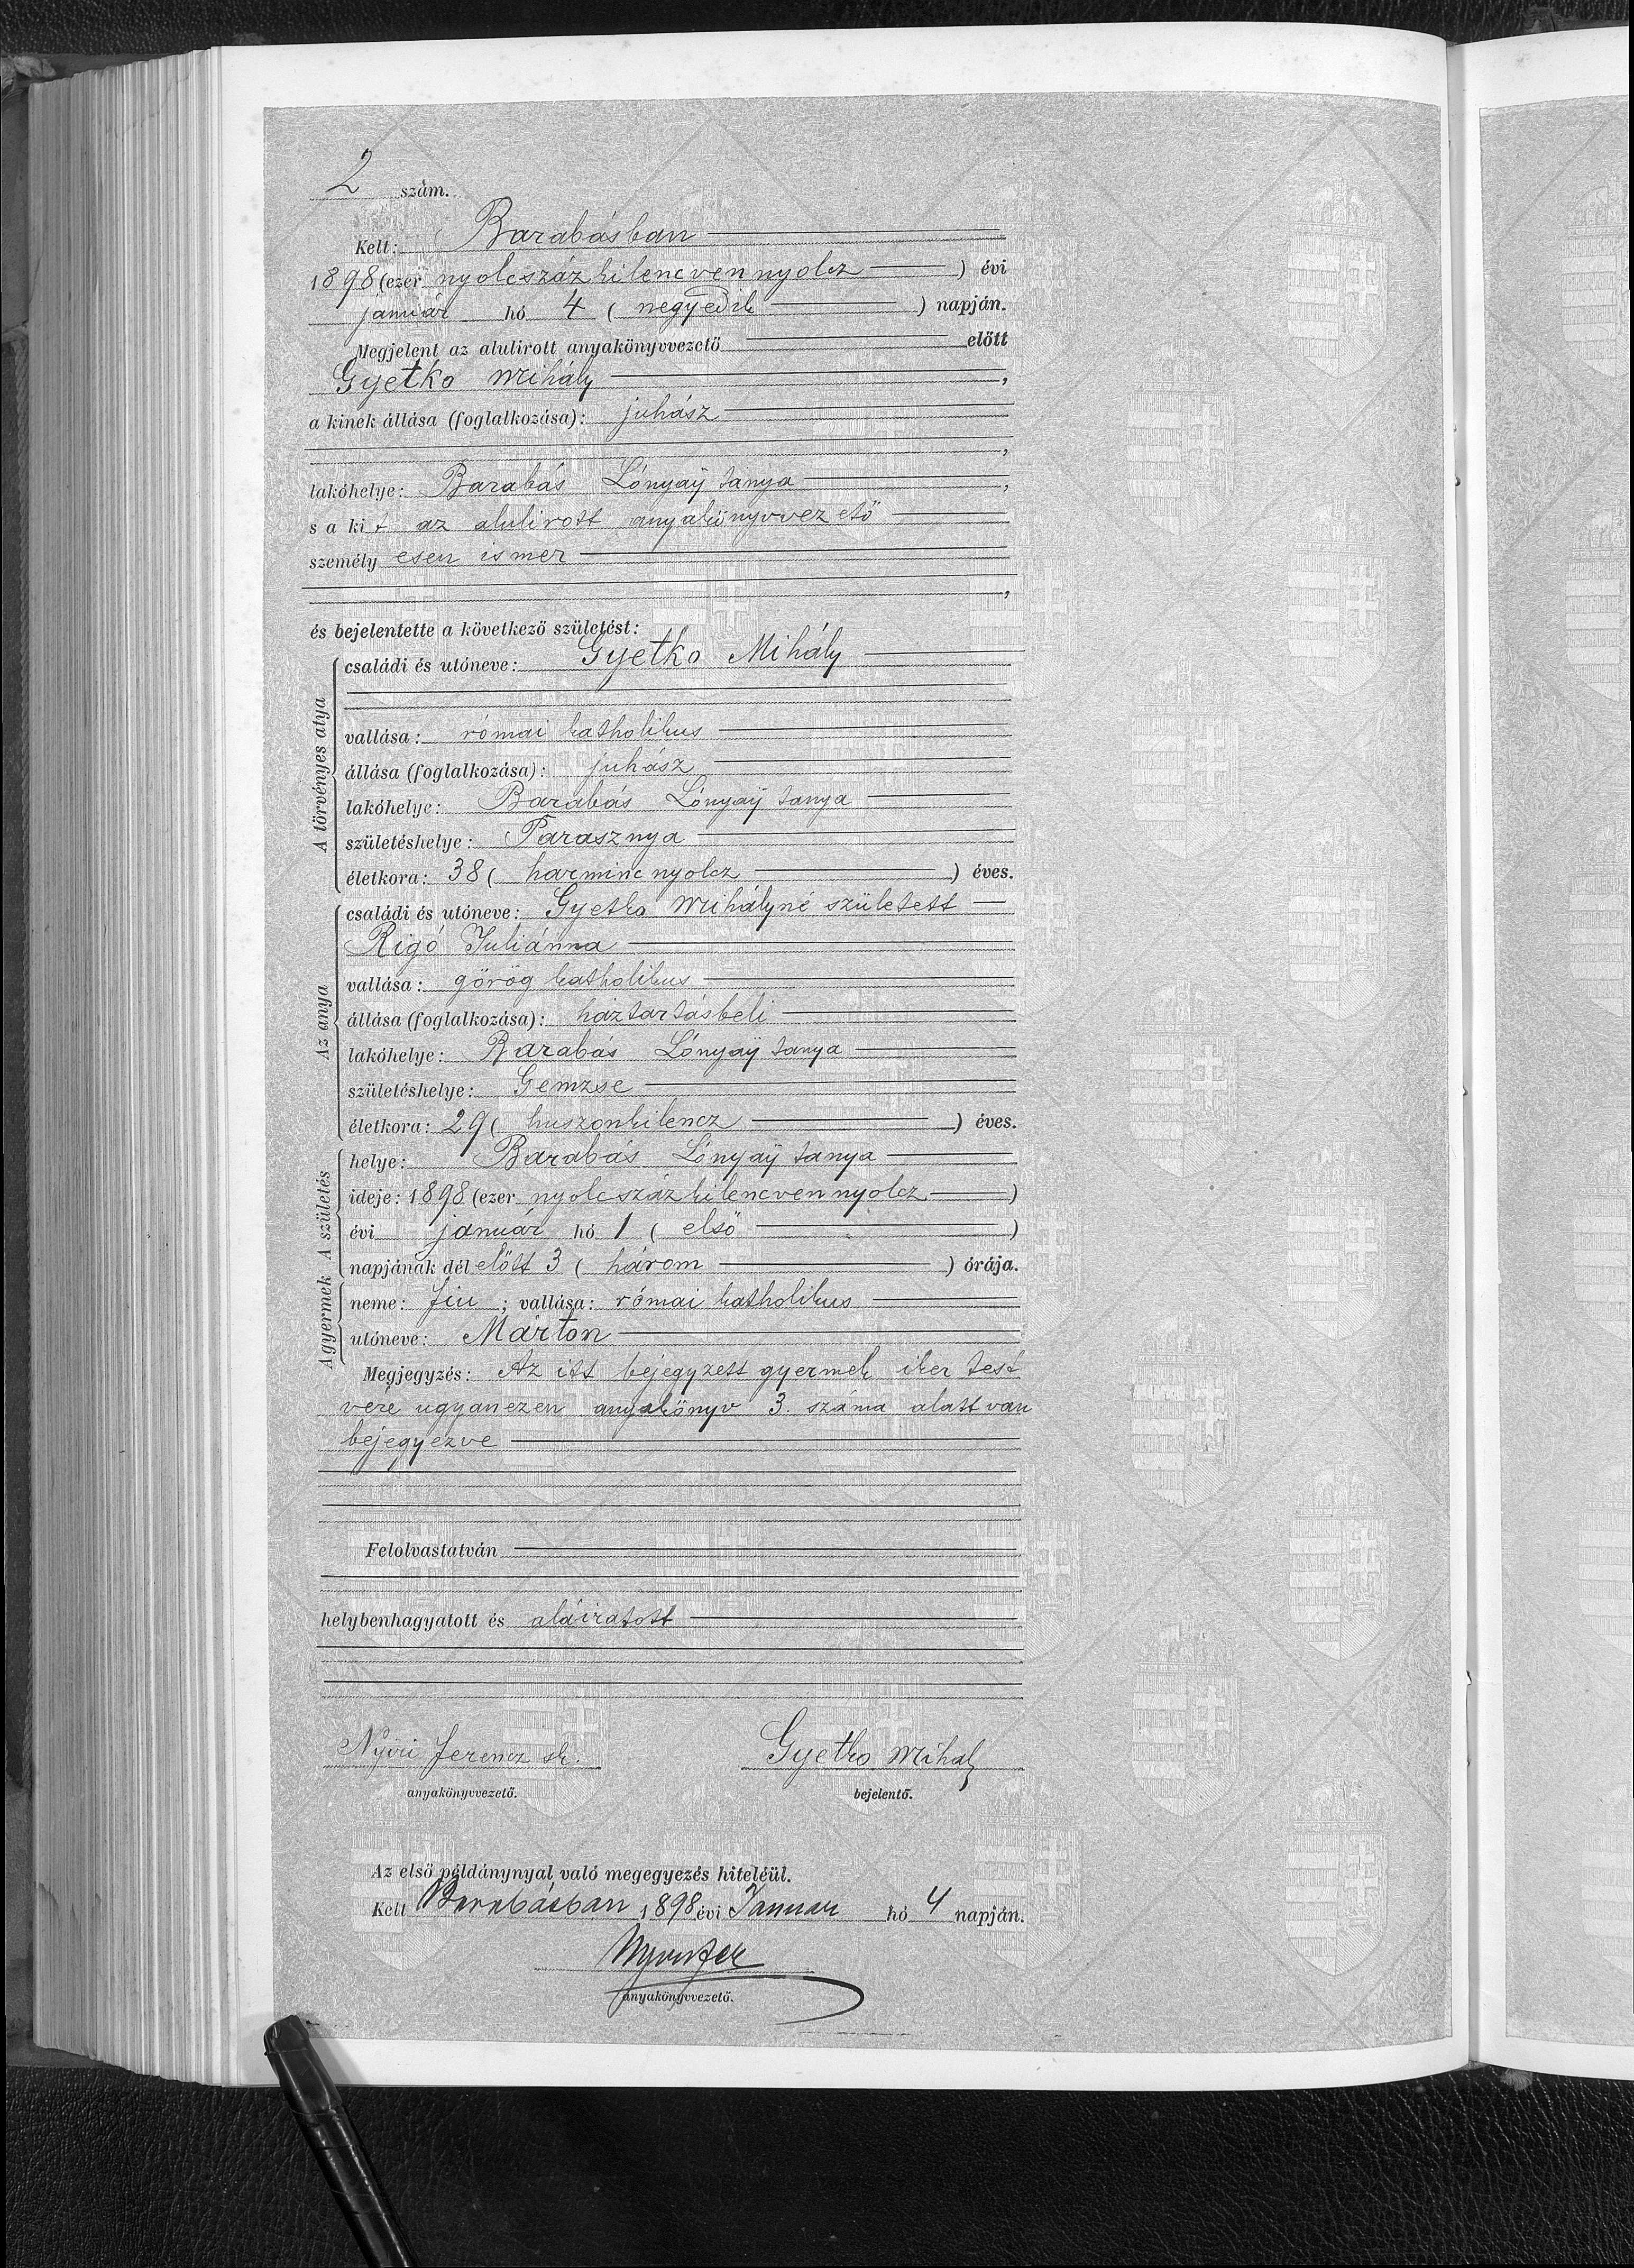 2 szám.
Kelt: Barabásban
1898 (ezer nyolcszázkilencvennyolcz) évi
január hó 4 (negyedik) napján.
Megjelent az alulirott anyakönyvvezető előtt
Gyetko Mihály,
a kinek állása (foglalkozása): juhász
,
lakóhelye: Barabás Lónyaÿ tanya,
s a kit az alulirott anyakönyvvezető
személyesen ismer
,
és bejelentette a következő születést:
A törvényes atya
családi és utóneve: Gyetko Mihály
vallása: római katholikus
állása (foglalkozása): juhász
lakóhelye: Barabás Lónyaÿ tanya
születéshelye: Parasznya
életkora: 38 (harmincnyolcz) éves.
Az anya
családi és utóneve: Gyetko Mihályné született
Rigó Juliánna
vallása: görög katholikus
állása (foglalkozása): háztartásbeli
lakóhelye: Barabás Lónyaÿ tanya
születéshelye: Gemzse
életkora: 29 (huszonkilencz) éves.
A születés
helye: Barabás Lónyaÿ tanya
ideje: 1898 (ezer nyolcszázkilencvennyolcz)
évi január hó 1 (első)
napjának délelőtt 3 (három) órája.
A gyermek
neme: fiu; vallása: római katholikus
utóneve: Márton
Megjegyzés: Az itt bejegyzett gyermek iker test
vére ugyanezen anyakönyv 3. száma alatt van
bejegyezve
Felolvastatván
helybenhagyatott és aláiratott
Nyiri Ferencz sk. Gyetko Mihaly
anyakönyvvezető. bejelentő.
Az első példánynyal való megegyezés hiteléül.
Kelt Barabásban 1898 évi Januar hó 4 napján.
anyakönyvvezető.